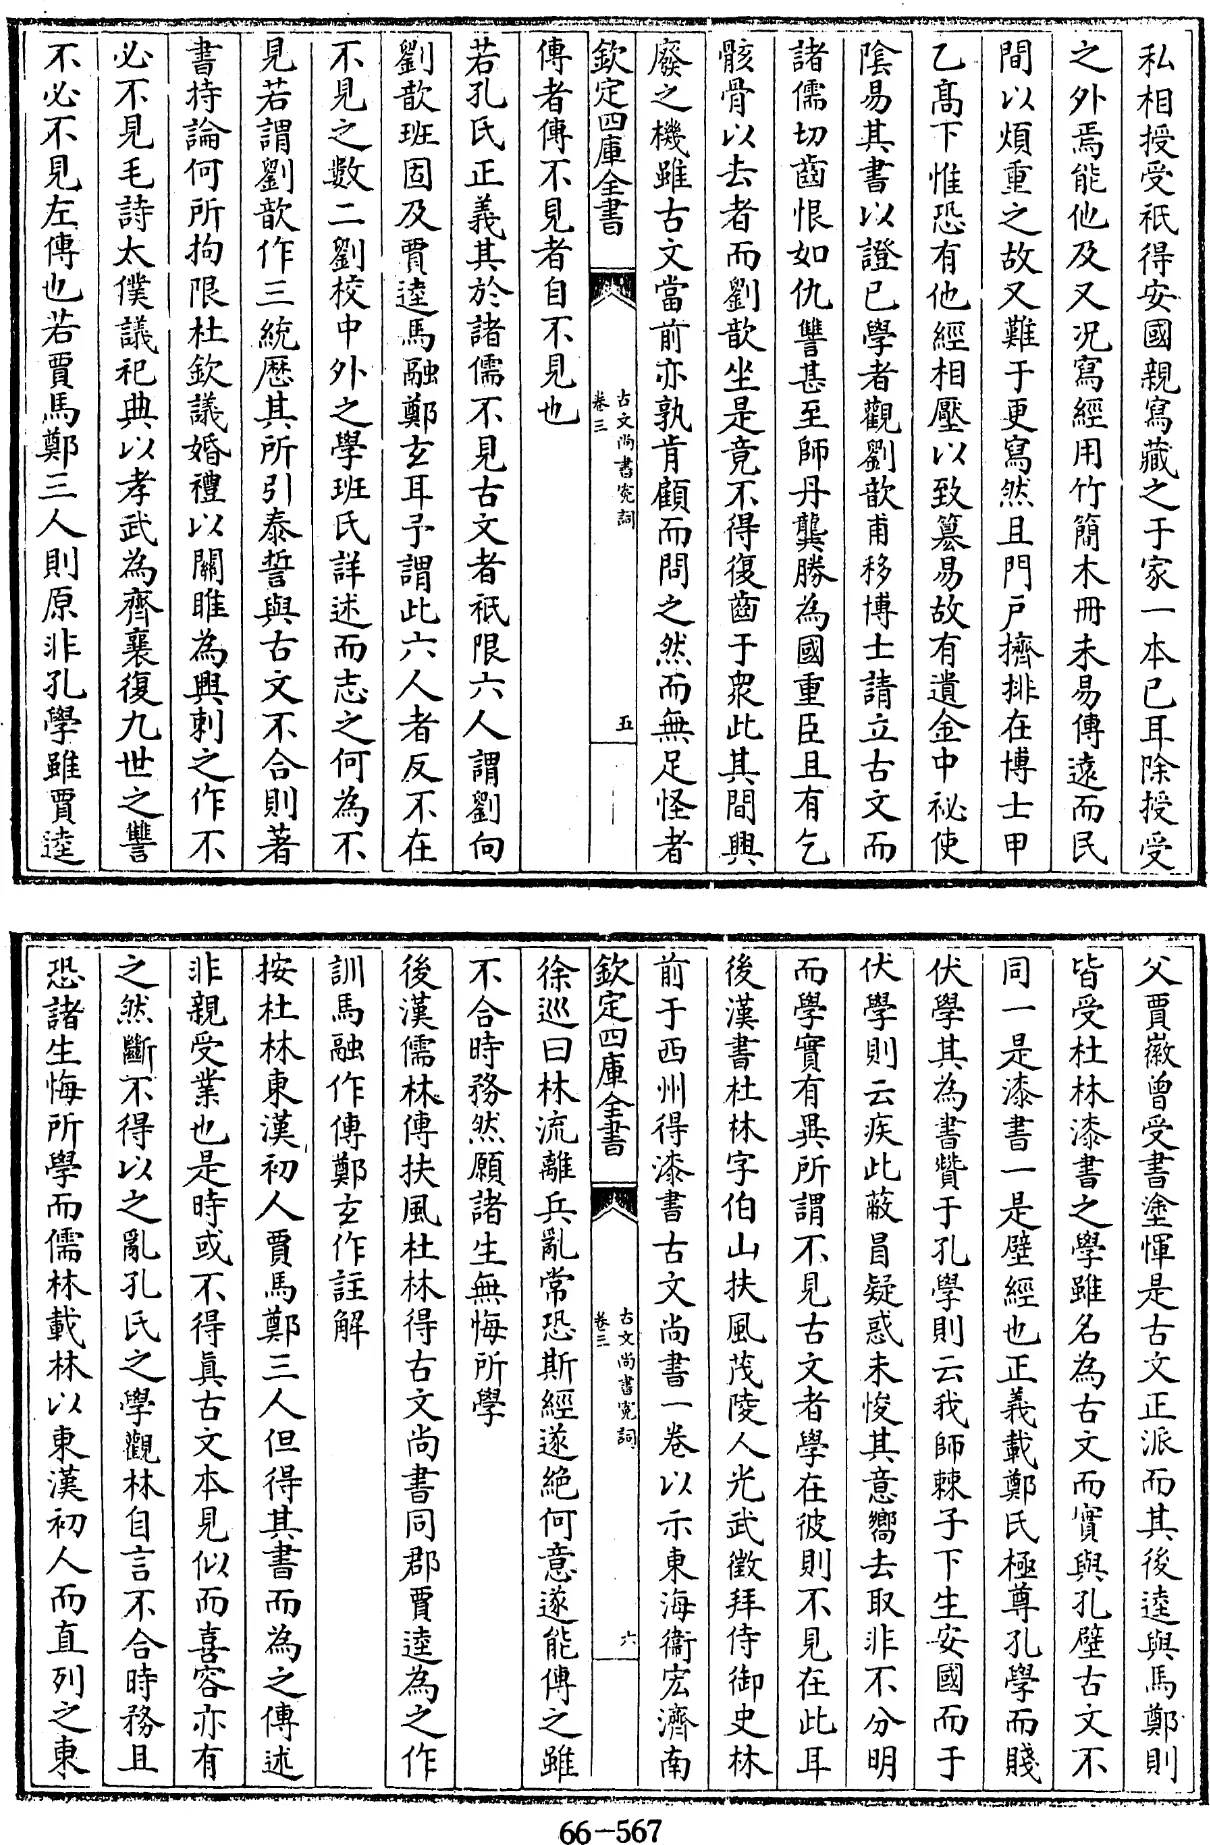 私相授受祇得安國親寫藏之于家一本已耳除授受
之外焉能他及又况寫經用竹簡木冊未易傳遠而民
間以煩重之故又難于更寫然且門戸擠排在博士甲
乙髙下惟恐有他經相壓以致簒易故有遺金中祕使
陰易其書以證已學者觀劉歆甫移博士請立古文而
諸儒切齒恨如仇讐甚至師丹龔勝為國重臣且有乞
骸骨以去者而劉歆坐是竟不得復齒于衆此其間興
廢之機雖古文當前亦孰肯顧而問之然而無足怪者
欽定四庫全書
古文尚書寃詞
卷三
五
傳者傳不見者自不見也
若孔氏正義其於諸儒不見古文者祇限六人謂劉向
劉歆班固及賈逵馬融鄭玄耳予謂此六人者反不在
不見之數二劉校中外之學班氏詳述而志之何為不
見若謂劉歆作三統歴其所引泰誓與古文不合則著
書持論何所拘限杜欽議婚禮以關雎為興刺之作不
必不見毛詩太僕議祀典以孝武為齊襄復九世之讐
不必不見左傳也若賈馬鄭三人則原非孔學雖賈逵
父賈徽曾受書塗惲是古文正派而其後逵與馬鄭則
皆受杜林漆書之學雖名為古文而實與孔壁古文不
同一是漆書一是壁經也正義載鄭氏極尊孔學而賤
伏學其為書贊于孔學則云我師棘子下生安國而于
伏學則云疾此蔽冒疑惑未悛其意嚮去取非不分明
而學實有異所謂不見古文者學在彼則不見在此耳
後漢書杜林字伯山扶風茂陵人光武徵拜侍御史林
前于西州得漆書古文尚書一卷以示東海衞宏濟南
欽定四庫全書
古文尚書寃詞
卷三
六
徐巡曰林流離兵亂常恐斯經遂絶何意遂能傳之雖
不合時務然願諸生無悔所學
後漢儒林傳扶風杜林得古文尚書同郡賈逵為之作
訓馬融作傳鄭玄作註解
按杜林東漢初人賈馬鄭三人但得其書而為之傳述
非親受業也是時或不得眞古文本見似而喜容亦有
之然斷不得以之亂孔氏之學觀林自言不合時務且
恐諸生悔所學而儒林載林以東漢初人而直列之東
66-567